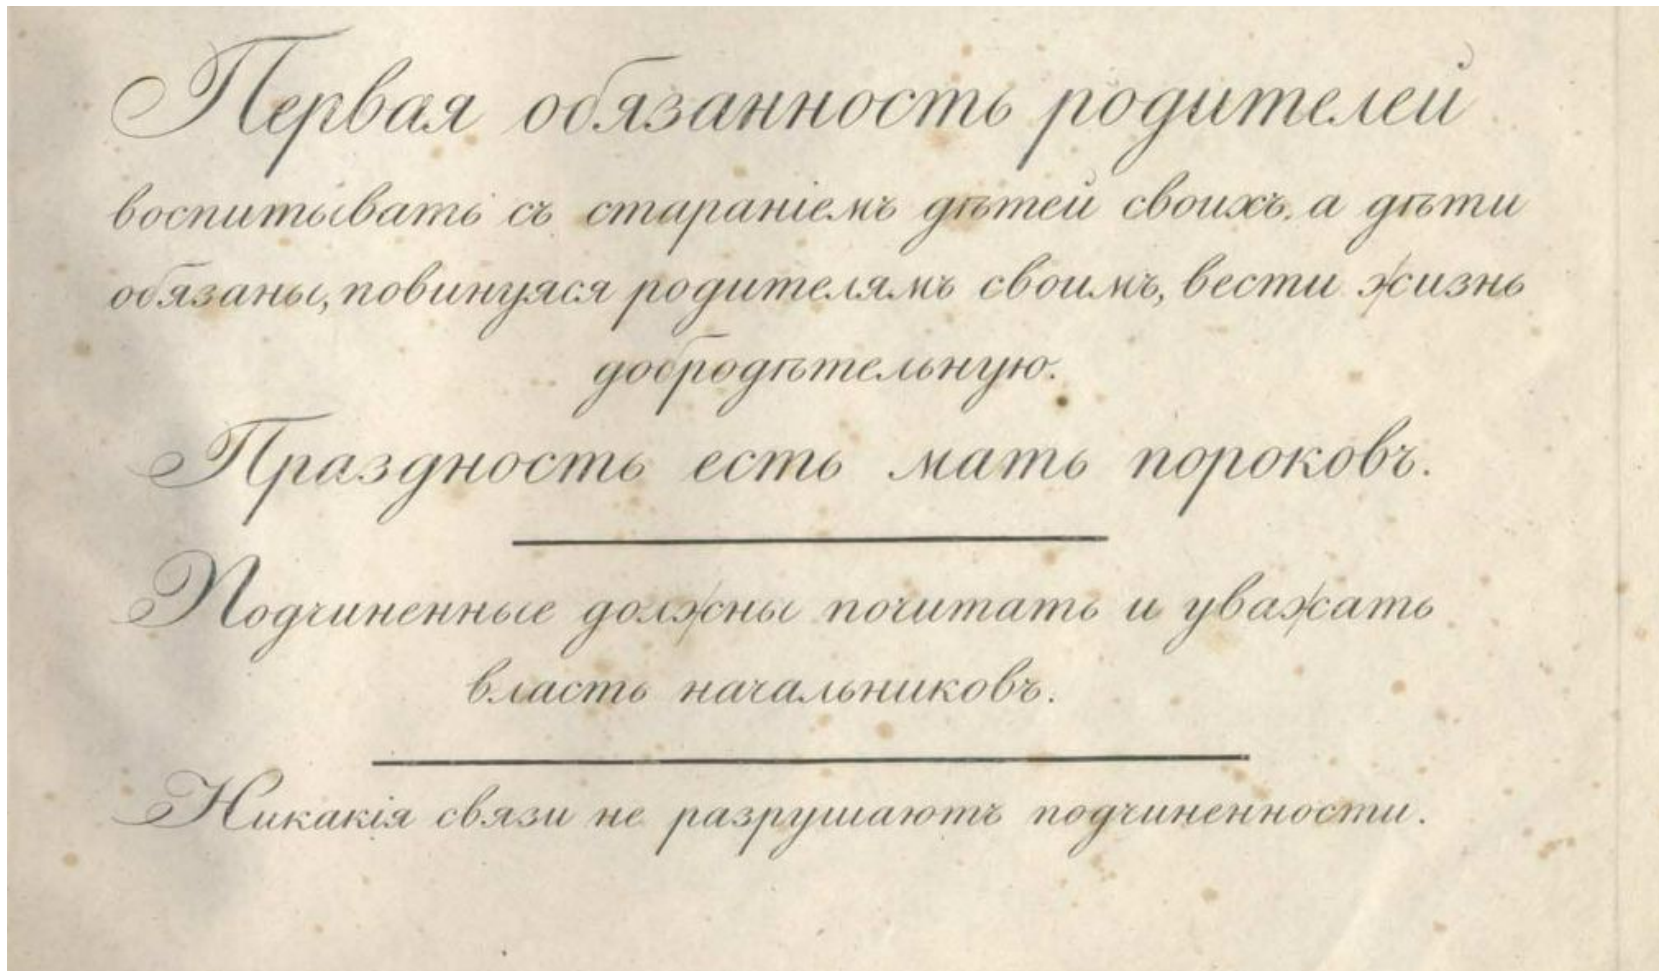 Первая обязанность родителей
воспитывать съ стараніемъ дѣтей своихъ, а дѣти
обязаны, повинуяся родителямъ своимъ, вести жизнь
добродѣтельную.
Праздность есть мать пороковъ.
Подчиненные должны почитать и уважать
власть начальниковъ.
Никакія связи не разрушаютъ подчиненности.